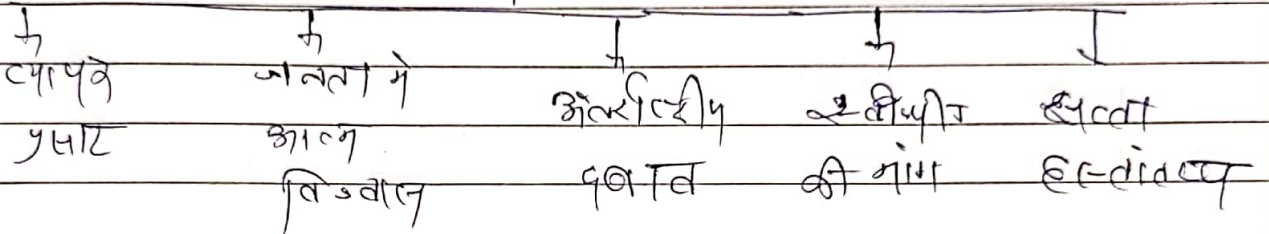 व्यापक
प्रसार
जनता मे
आत्म
विश्वास
अंतर्राष्ट्रीय
दबाव
की मांग
सत्ता
हस्तांतरण